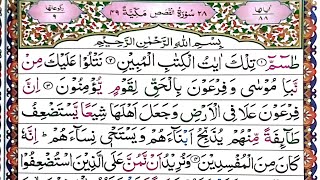 اٰیاتها ۸۸ ۲۸ سُوْرَةُ الْقَصَصِ مَكِّيَّةٌ ۴۹ رکوعاتها ۹
بِسْمِ اللّٰهِ الرَّحْمٰنِ الرَّحِيْمِ
طٰسٓمّٓ ۝۱ تِلْكَ اٰيٰتُ الْكِتٰبِ الْمُبِيْنِ ۝۲ نَتْلُوْا عَلَيْكَ مِنْ
نَّبَاِ مُوْسٰى وَ فِرْعَوْنَ بِالْحَقِّ لِقَوْمٍ يُّؤْمِنُوْنَ ۝۳ اِنَّ
فِرْعَوْنَ عَلَا فِى الْاَرْضِ وَ جَعَلَ اَهْلَهَا شِيَعًا يَّسْتَضْعِفُ
طَآئِفَةً مِّنْهُمْ يُذَبِّحُ اَبْنَآءَهُمْ وَ يَسْتَحْىٖ نِسَآءَهُمْ ؕ اِنَّهٗ
كَانَ مِنَ الْمُفْسِدِيْنَ ۝۴ وَ نُرِيْدُ اَنْ نَّمُنَّ عَلَى الَّذِيْنَ اسْتُضْعِفُوْا